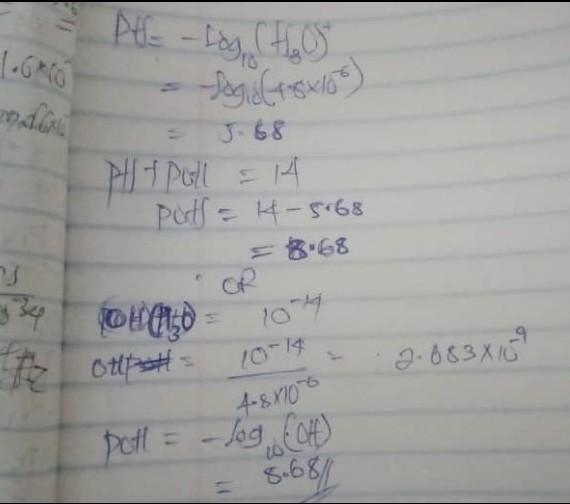 PH = -Log₁₀(H₃O)⁺
= -log₁₀(4.8×10⁻⁶)
= 5.68
PH + POH = 14
POH = 14 - 5.68
= 8.68
OR
(OH)(H₃O) = 10⁻¹⁴
OH = 10⁻¹⁴ / 4.8×10⁻⁶ = 2.083×10⁻⁹
POH = -log₁₀(OH)
= 8.68//
1.6×10